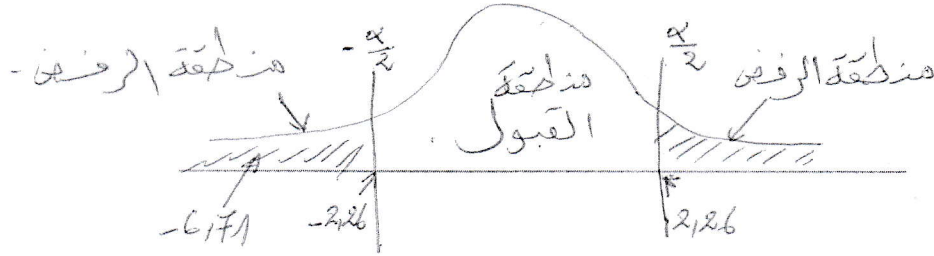 منطقة الرفض
-α/2
منطقة
القبول
α/2
منطقة الرفض
-6,71
-2,26
2,26